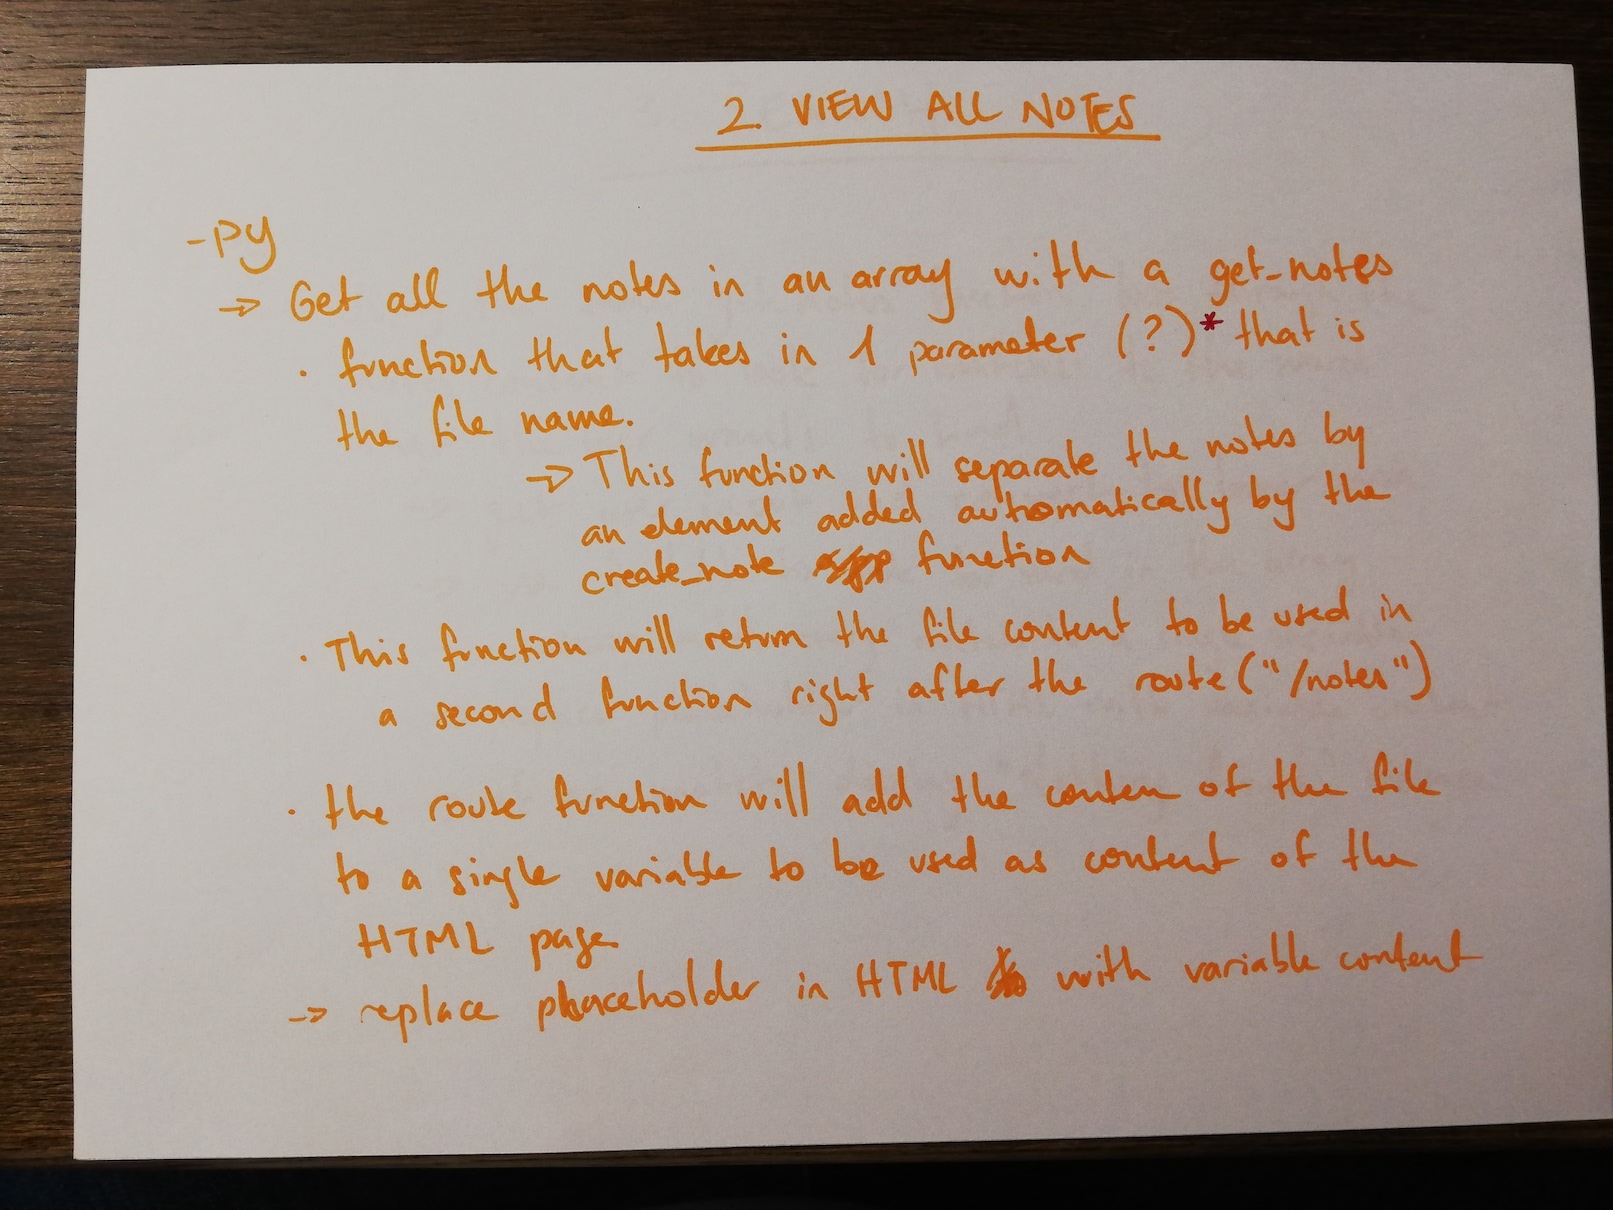 2. VIEW ALL NOTES
- py
→ Get all the notes in an array with a get_notes
· function that takes in 1 parameter (?)* that is
the file name.
→ This function will separate the notes by
an element added automatically by the
create_note function
· This function will return the file content to be used in
a second function right after the route("/notes")
· the route function will add the conten of the file
to a single variable to be used as content of the
HTML page
→ replace placeholder in HTML with variable content